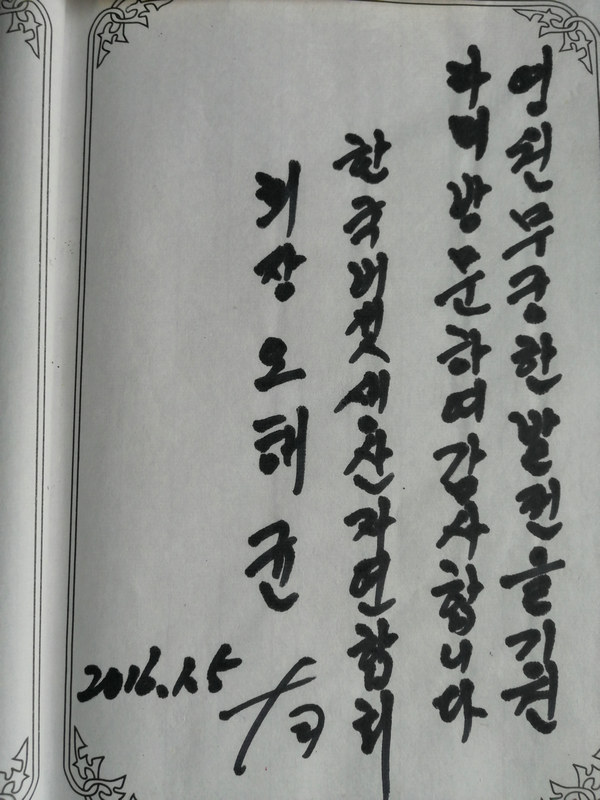 영원무궁한 발전을 기원
하며 방문하여 감사합니다
한국버섯생산자연합회
회장 오해균
2016.1.5